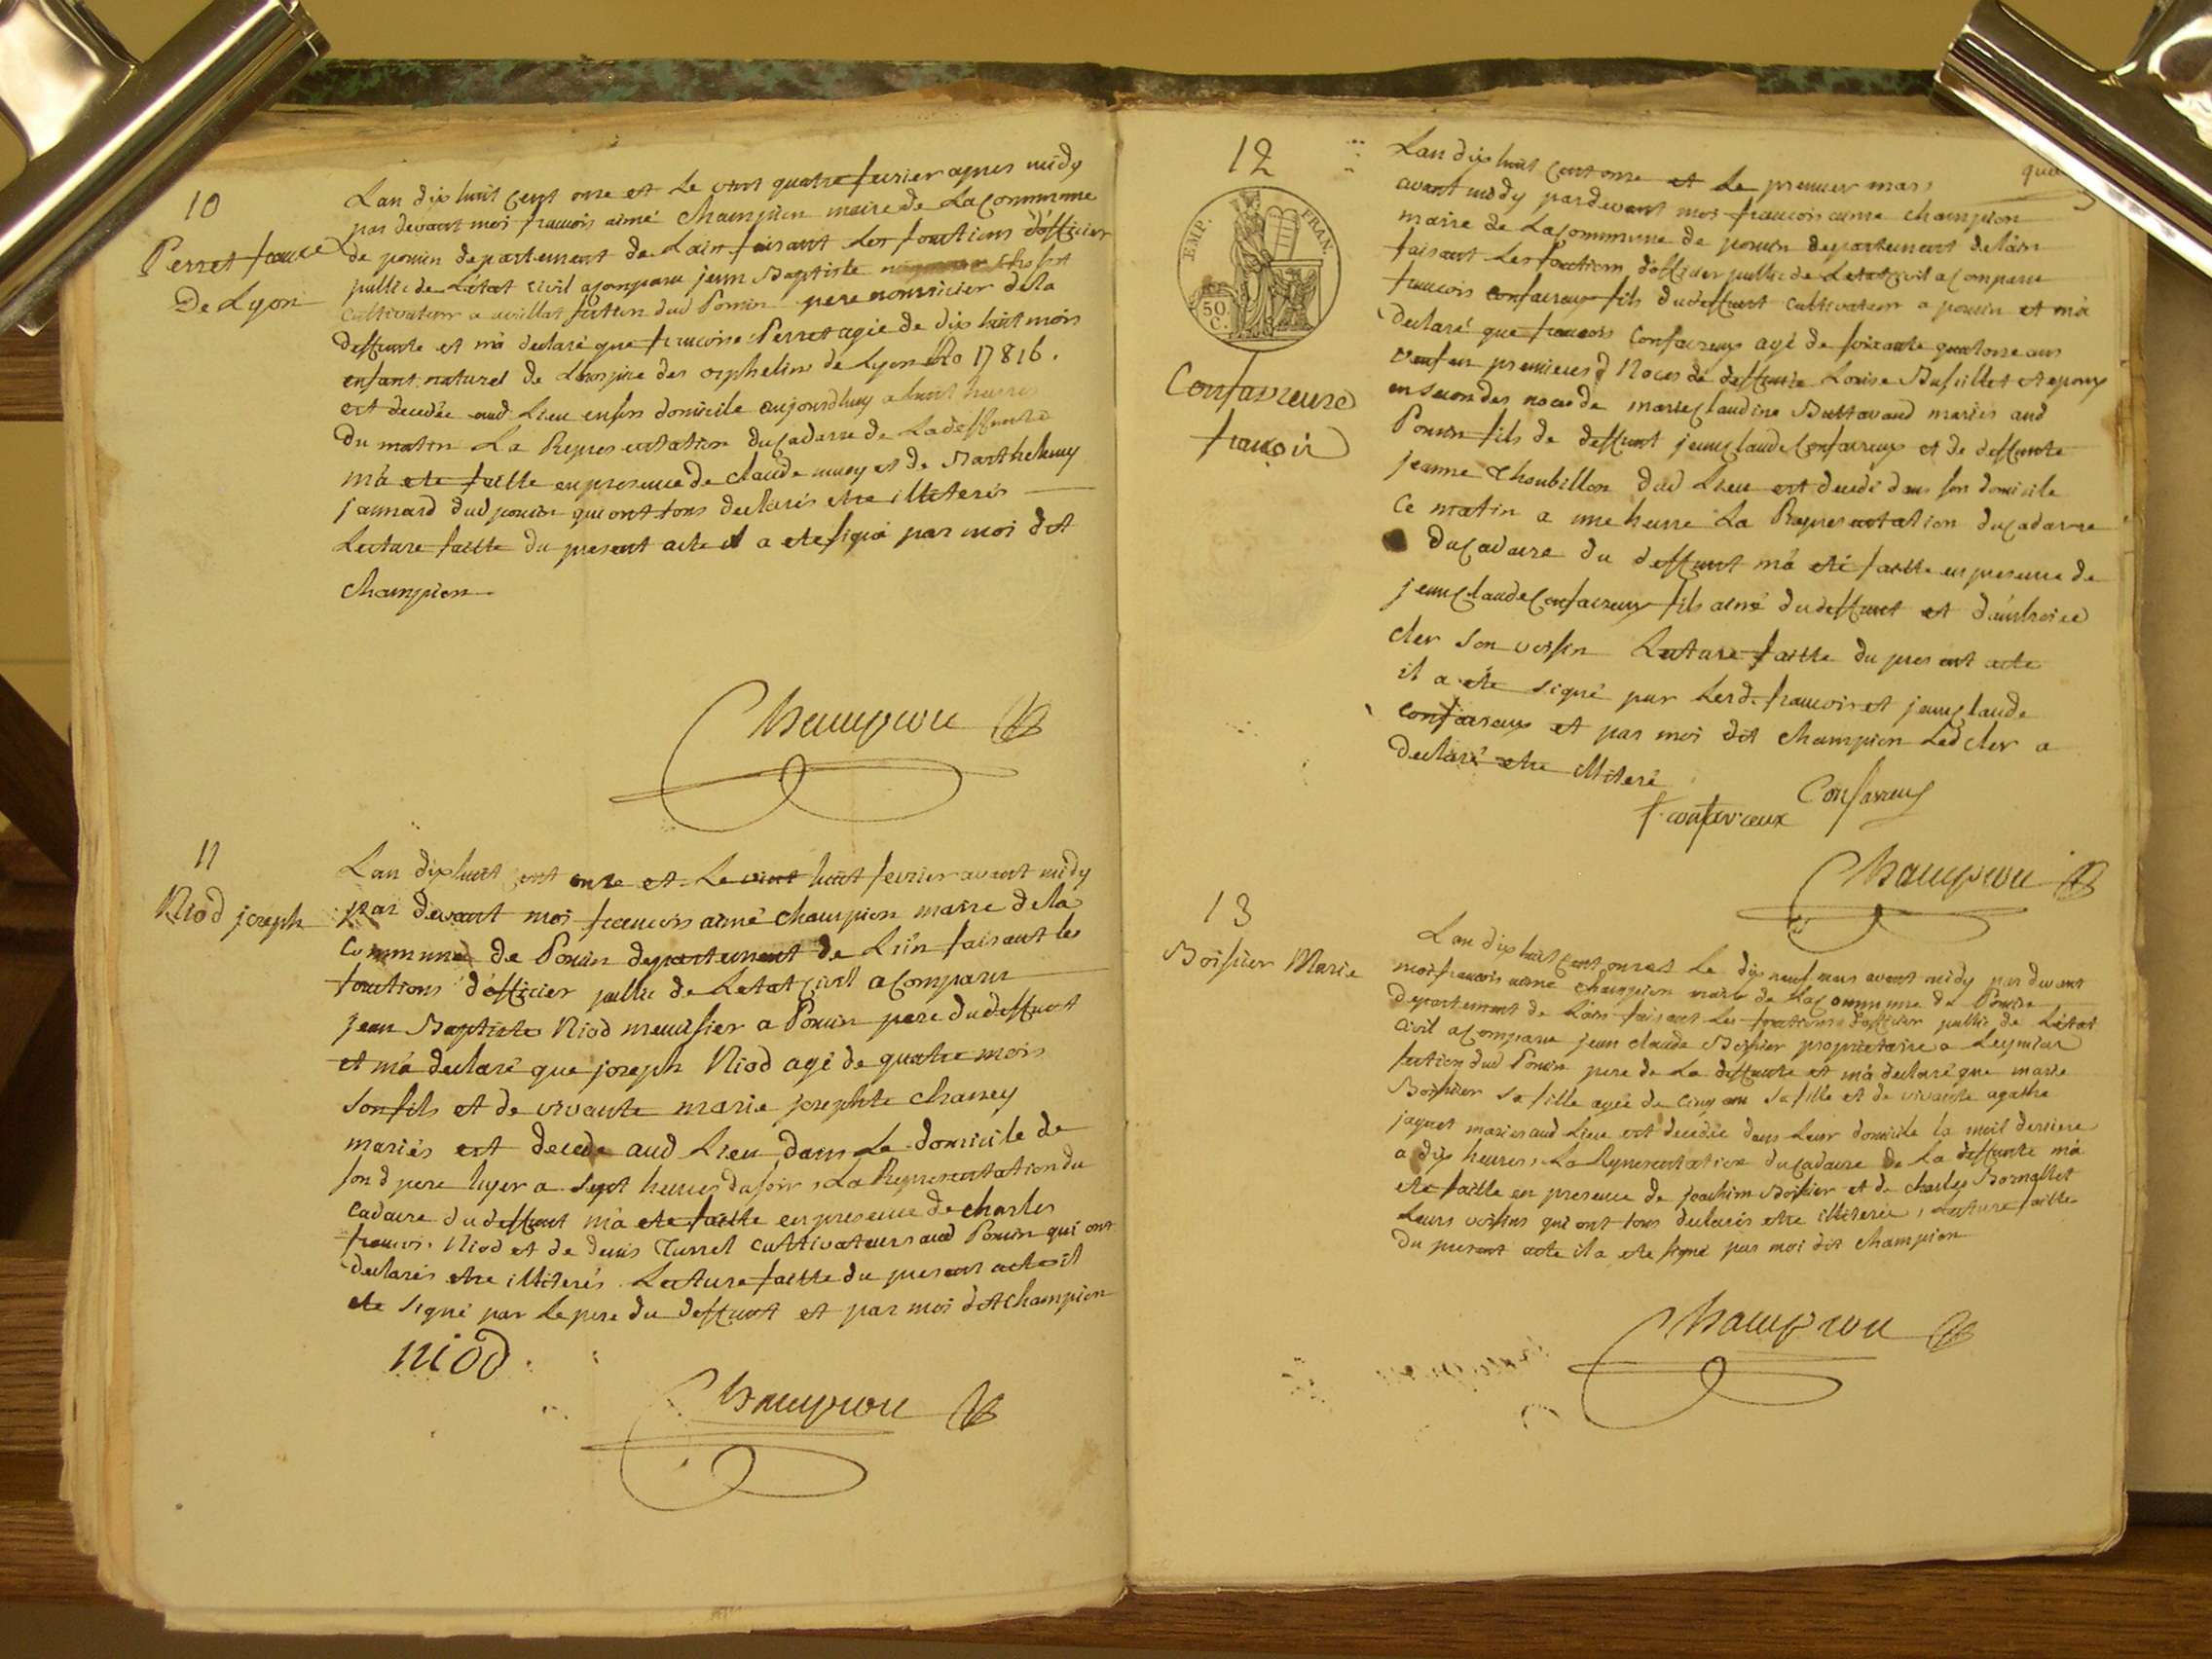 10
Perret france
De Lyon
Lan dix huit cent onze et Le vint quatre fevrier apres midy
par devant moi francois aimé Champion maire de La Commune
de poncin departement de Lain faisant Les fonctions d'officier
public de Létat civil a comparu jean Baptiste
cultivateur a section dud Poncin pere nourricier dela
deffunte et m'a declaré que francoise Perret agée de dix huit mois
enfant naturel de Lhospice des orphelins de Lyon No 17816.
est decedée aud Lieu en son domicile aujourdhuy a huit heures
du matin La Representation du Cadavre de La deffunte
m'a ete faitte en presence de Claude et de Barthelemy
jannard dud poncin qui ont tous declarés etre illiterés
Lecture faitte du present acte il a ete signé par moi dit
Champion
Champion
11
Niod joseph
Lan dix huit cent onze et Le vint huit fevrier avant midy
par devant moi francois aimé champion maire dela
Commune de Poncin departement de Lain faisant les
fonctions d'officier public de Letat civil a Comparu
jean Baptiste Niod menuisier a Poncin pere du deffunt
et m'a declaré que joseph Niod agé de quatre mois
son fils et de vivante marie josephte
mariés est decede aud Lieu dans Le domicile de
sond pere hyer a sept heures du soir, La Representation du
Cadavre du deffunt m'a ete faitte en presence de charles
francois Niod et de denis Turrel cultivateurs aud Poncin qui ont
declarés etre illiterés Lecture faitte du present acte il
ete signé par Le pere du deffunt et par moi dit champion
niod
Champion
12
EMP. FRAN.
50 C.
Confavreuxe
francois
Lan dix huit cent onze et Le premier mars
avant midy par devant moi francois aimé champion
maire de La Commune de poncin departement de lain
faisant Les fonctions d'officier public de Letat civil a Comparu
francois Confavreux fils du deffunt cultivateur a poncin et m'a
declaré que francois Confavreux agé de soixante quatorze ans
veuf en premieres Noces de deffunte Louise et epoux
en secondes noces de marie Claudine mariés aud
Poncin fils de deffunt jean Claude Confavreux et de deffunte
jeanne Thoubillon dud Lieu est decedé dans son domicile
Ce matin a une heure La Representation du Cadavre
du Cadavre du deffunt m'a eté faitte en presence de
jean Claude Confavreux fils ainé du deffunt et d'ambroise
cler son voisin Lecture faitte du present acte
il a ete signé par Lesd. francois et jean Claude
Confavreux et par moi dit champion Led cler a
declaré etre illiteré
f. confavreux Confavreux
Champion
13
Boissier Marie
Lan dix huit cent onze et Le dix neuf mars avant midy par devant
moi francois aimé champion maire de La Commune de Poncin
departement de Lain faisant Les fonctions d'officier public de Létat
Civil a Comparu jean claude Boissier proprietaire a Leymiat
section dud Poncin pere de La deffunte et m'a declaré que marie
Boissier sa fille agée de Cinq ans sa fille et de vivante agathe
jaquet mariés aud Lieu est decedée dans Leur domicile la nuit derniere
a dix heures, La Representation du Cadavre de La deffunte m'a
ete faitte en presence de joachim Boissier et de charles
Leurs voisins qui ont tous declarés etre illiterés, Lecture faitte
du present acte il a ete signé par moi dit champion
Champion